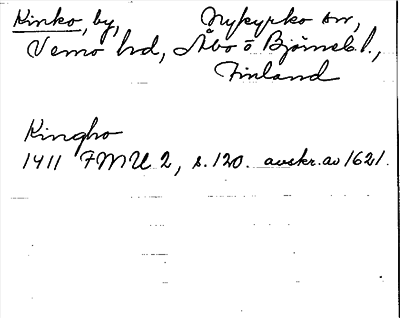 Kinko, by, Nykyrko sn,
Vemo hrd, Åbo o Björneb. l.,
Finland
Kingho
1411 FMU 2, s. 120. avskr. av 1621.